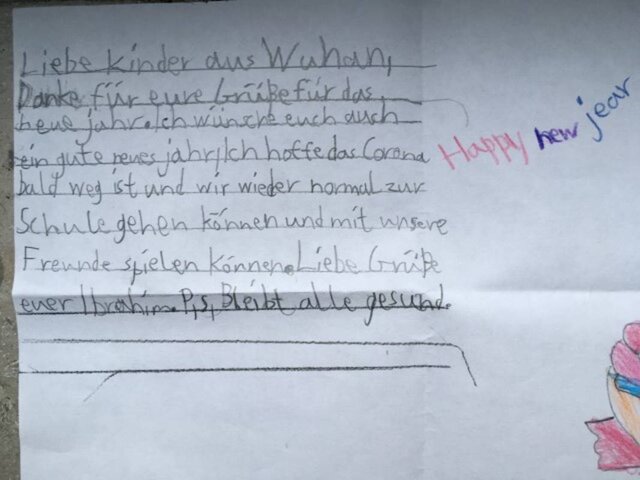 Liebe kinder aus Wuhan,
Danke für eure Grüße für das
neue jahr. Ich wünsche euch auch
ein gute neues jahr, Ich hoffe das Corona
bald weg ist und wir wieder normal zur
Schule gehen können und mit unsere
Freunde spielen können. Liebe Grüße
euer Ibrahim. P,S, Bleibt alle gesund.
Happy new jear